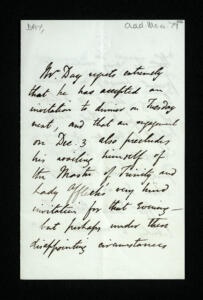 DAY,
Mr. Day regrets extremely
that he has accepted an
invitation to dinner on Tuesday
next, and that an engagement
on Dec. 3 also precludes
his availing himself of
the Master of Trinity and
Lady Affleck's very kind
invitation for that evening —
but perhaps under these
disappointing circumstances